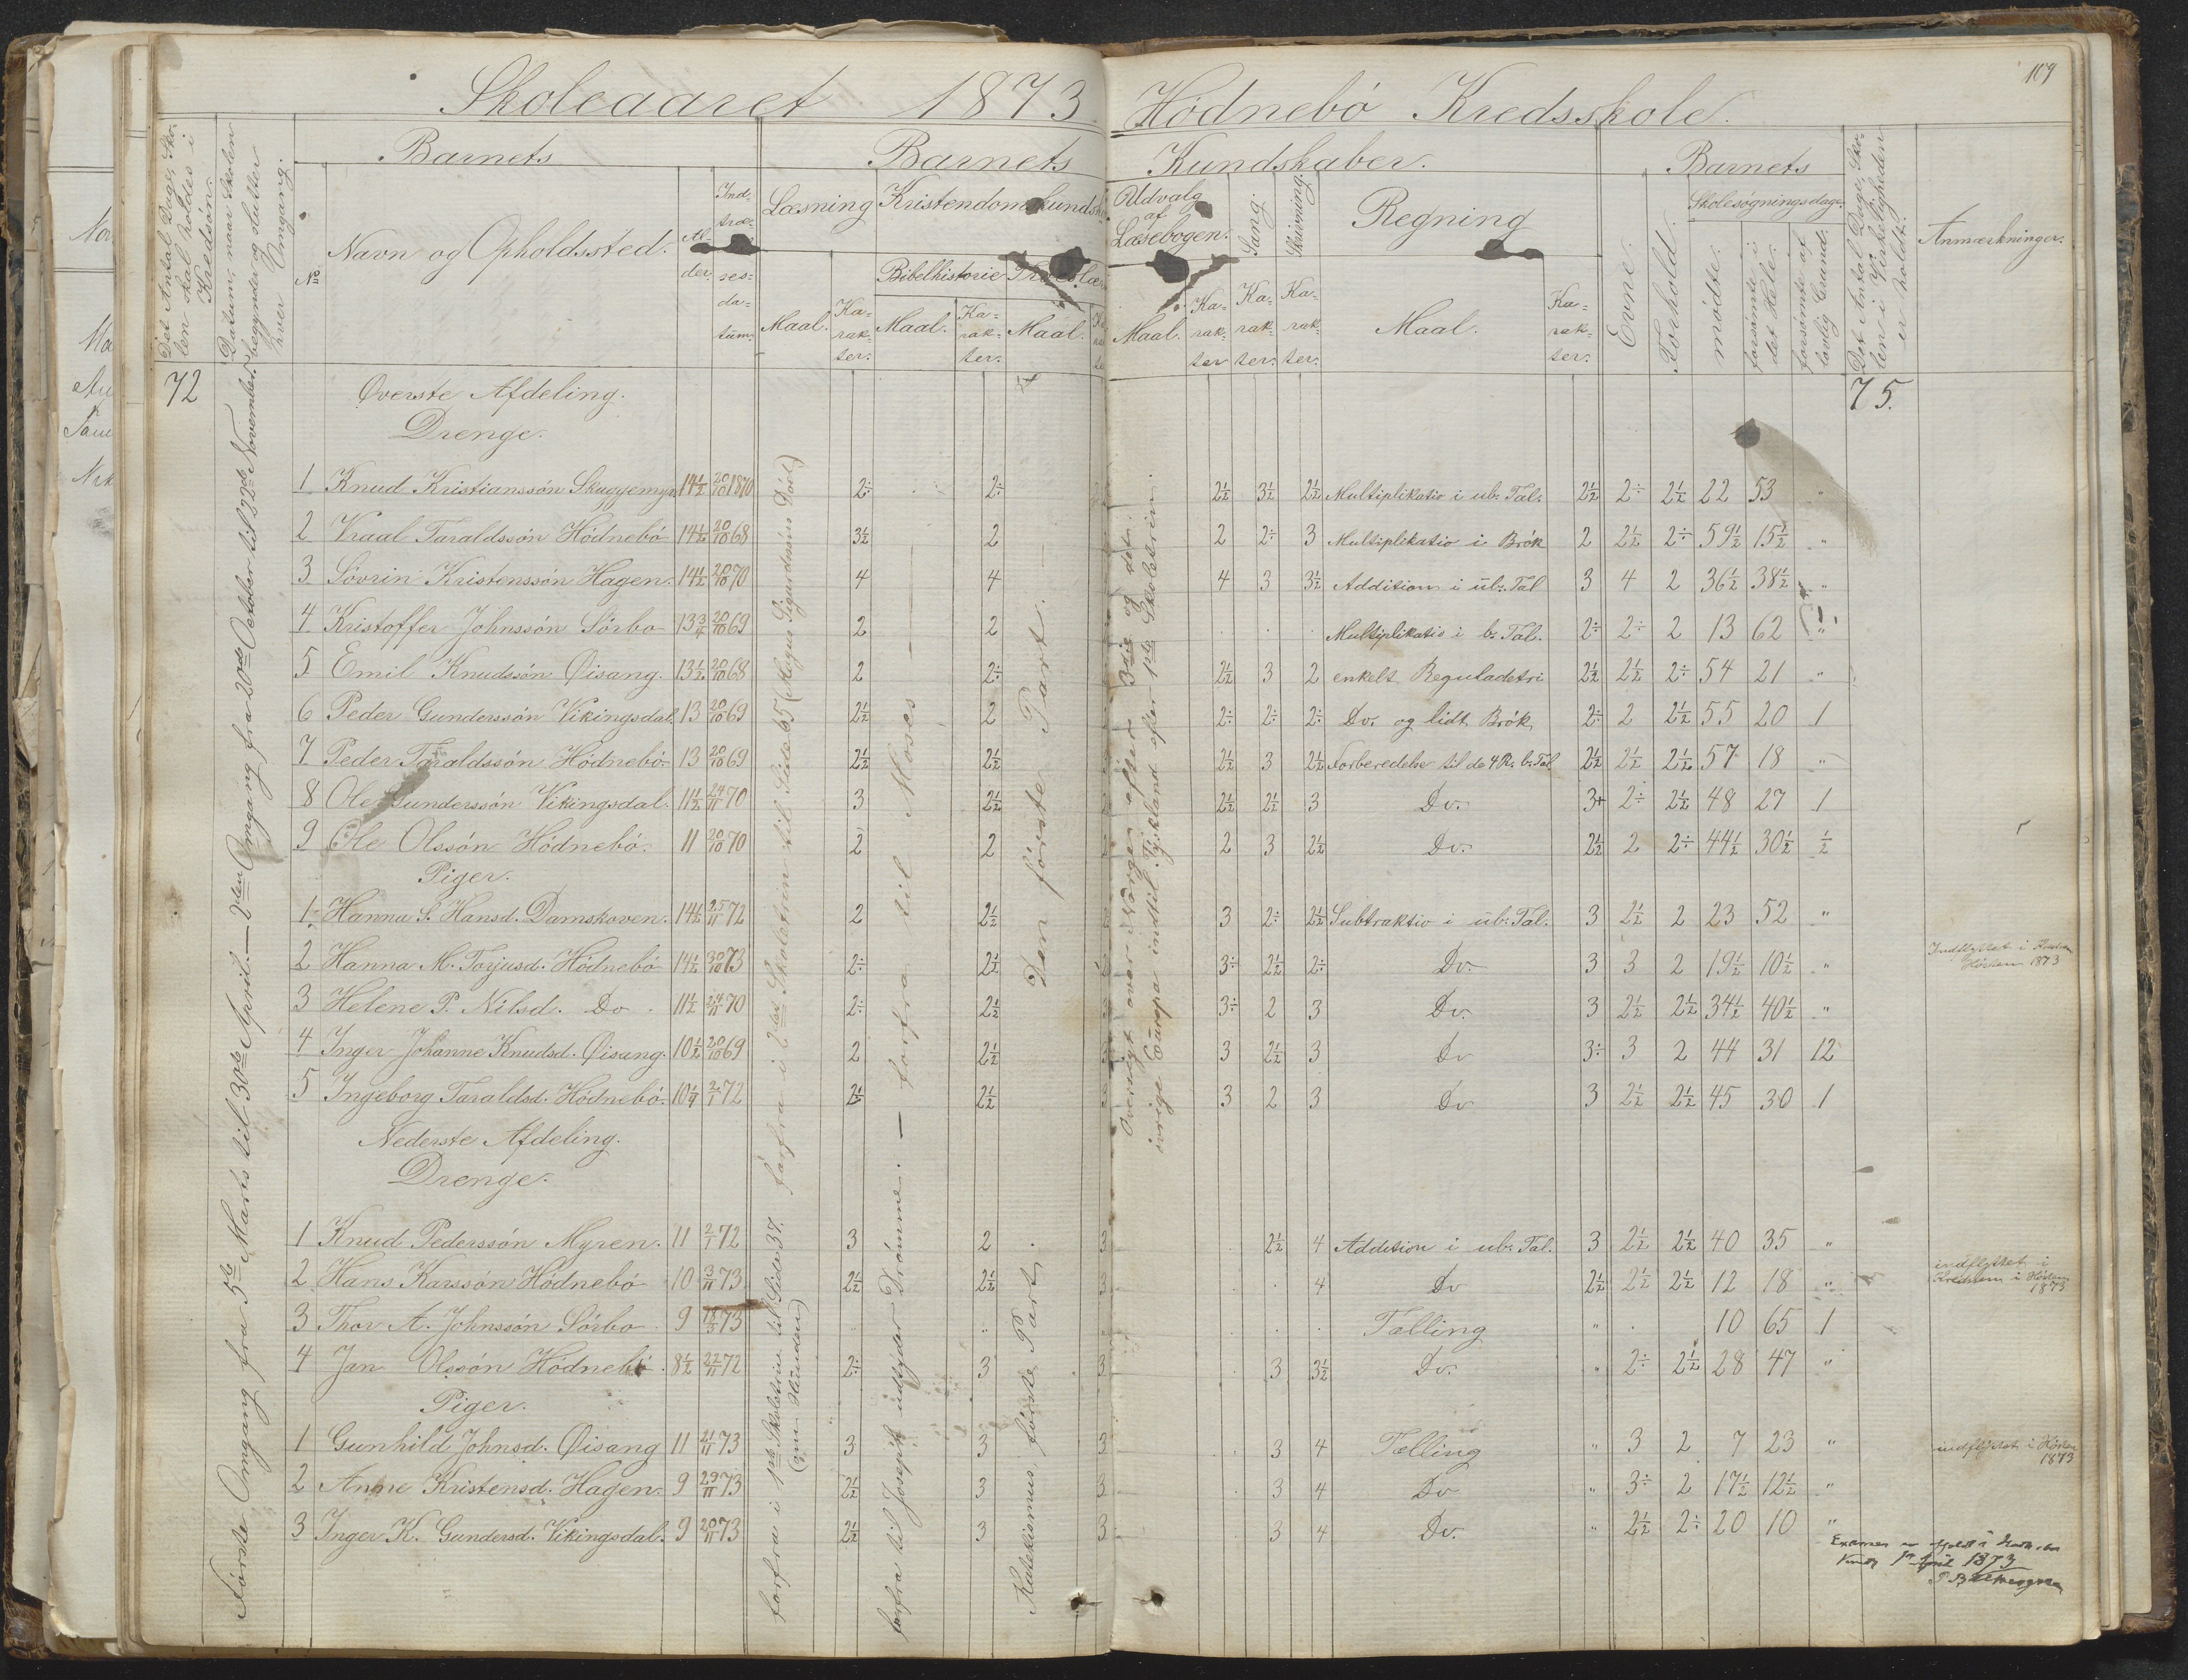 109
Skoleaaret 1873 Hödnebö Kredsskole.
Det Antal Dage, Skolen skal holdes i Kredsen.
Datum, naar Skolen begynder og slutter hver Omgang.
Barnets
Barnets Kundskaber.
Barnets
Det Antal Dage, Skolen i Virkeligheden er holdt.
Anmærkninger.
No
Navn og Opholdssted.
Alder.
Indtrædelsesdatum.
Læsning
Kristendomskundsk
Bibelhistorie
Troeslær
Udvalg af Læsebogen.
Sang.
Skrivning.
Regning
Evne.
Forhold.
Skolesøgningsdage.
mødte.
forsömte i det Hele.
forsömte af lovlig Grund.
Maal.
Karakter.
Maal.
Karakter.
Maal.
Maal.
Karakter
Karakter.
Karakter.
Maal.
Karakter.
72
75.
Første Omgang fra 5te Marts til 30te April. — 2den Omgang fra 20de October til 22de November.
Øverste Afdeling.
Drenge.
1 Knud Kristianssön Skuggemyr 14½ 20/10 1870 2÷ 2÷ 2½ 3½ 2½ Multiplikatio i ub. Tal. 2½ 2÷ 2½ 22 53 "
2 Vraal Taraldssön Hödnebö 14½ 20/10 68 3½ 2 2 2÷ 3 Multiplikatio i Brök 2 2½ 2÷ 59½ 15½ "
3 Sövrin Kristenssön Hagen. 14½ 20/10 70 4 4 4 3 3½ Addition i ub. Tal 3 4 2 36½ 38½ "
4 Kristoffer Johnssön Sörbo 13¾ 20/10 69 2 2 Multiplikatio i b. Tal. 2÷ 2÷ 2 13 62 "
5 Emil Knudssön Øisang. 13½ 20/10 68 2 2÷ 2½ 3 2 enkelt Reguladetri 2½ 2½ 2÷ 54 21 "
6 Peder Gunderssön Vikingsdal. 13 20/10 69 2½ 2 2÷ 2÷ 2÷ Do. og lidt Brök 2÷ 2 2½ 55 20 1
7 Peder Taraldssön Hödnebö. 13 20/10 69 2½ 2½ 2½ 3 2½ Forberedelse til de 4 R. b. Tal 2½ 2½ 2½ 57 18 "
8 Ole Gunderssön Vikingsdal. 11½ 24/11 70 3 2½ 2½ 2½ 3 Do. 3+ 2÷ 2½ 48 27 1
9 Ole Olssön Hödnebö. 11 20/10 70 2 2 2 3 2½ Do. 2½ 2 2÷ 44½ 30½ ½
Piger.
1 Hanna S. Hansd. Damskoven. 14½ 25/11 72 2 2½ 3 2÷ 2½ Subtraktio i ub. Tal. 3 2½ 2 23 52 "
2 Hanna M. Torjusd. Hödnebö 14½ 30/10 73 2÷ 2½ 3÷ 2½ 2÷ Do. 3 3 2 19½ 10½ " Indflyttet i Kredsen Hösten 1873
3 Helene P. Nilsd. Do. 11½ 24/11 70 2÷ 2½ 3÷ 2 3 Do. 3 2½ 2½ 34½ 40½ "
4 Inger Johanne Knudsd. Øisang. 10½ 20/10 69 2 2½ 3 2½ 3 Do 3÷ 3 2 44 31 12
5 Ingeborg Taraldsd. Hödnebö. 10¼ 2/1 72 2½ 2½ 3 2 3 Do 3 2½ 2½ 45 30 1
forfra i 2det Skoletrin til Side 65 (Magus Sigurdssöns Död)
forfra til Moses
Den förste Part.
Oversigt over Norges efter 3die og det
övrige Europa indtil Tyskland efter 1ste Skoletrin.
Nederste Afdeling.
Drenge.
1 Knud Pederssön Myren. 11 2/1 72 3 2 3 2½ 4 Addition i ub. Tal. 3 2½ 2½ 40 35 "
2 Hans Karssön Hödnebö 10 3/11 73 2½ 2½ 3 4 Do 2½ 2½ 2½ 12 18 " indflyttet i Kredsen i Hösten 1873
3 Thor A. Johnssön Sörbo 9 18/3 73 " " Tælling " 10 65 1
4 Jan Olssön Hödnebö. 8½ 22/11 72 2÷ 3 3 3 3½ Do. " 2÷ 2½ 28 47 "
Piger.
1 Gunhild Johnsd. Øisang 11 21/11 73 3 3 3 3 4 Tælling " 3 2 7 23 " indflyttet i Hösten 1873
2 Anne Kristensd. Hagen. 9 29/11 73 2½ 3 3 3 4 Do " 3÷ 2 17½ 12½ "
3 Inger K. Gundersd. Vikingsdal. 9 20/11 73 2½ 3 3 3 4 Do. " 2½ 2÷ 20 10 "
forfra i 1ste Skoletrin til Side 37.
(om Hunden)
forfra til Joseph udtyder Drömme.
Katekismus, förste Part
Examen
April 1873